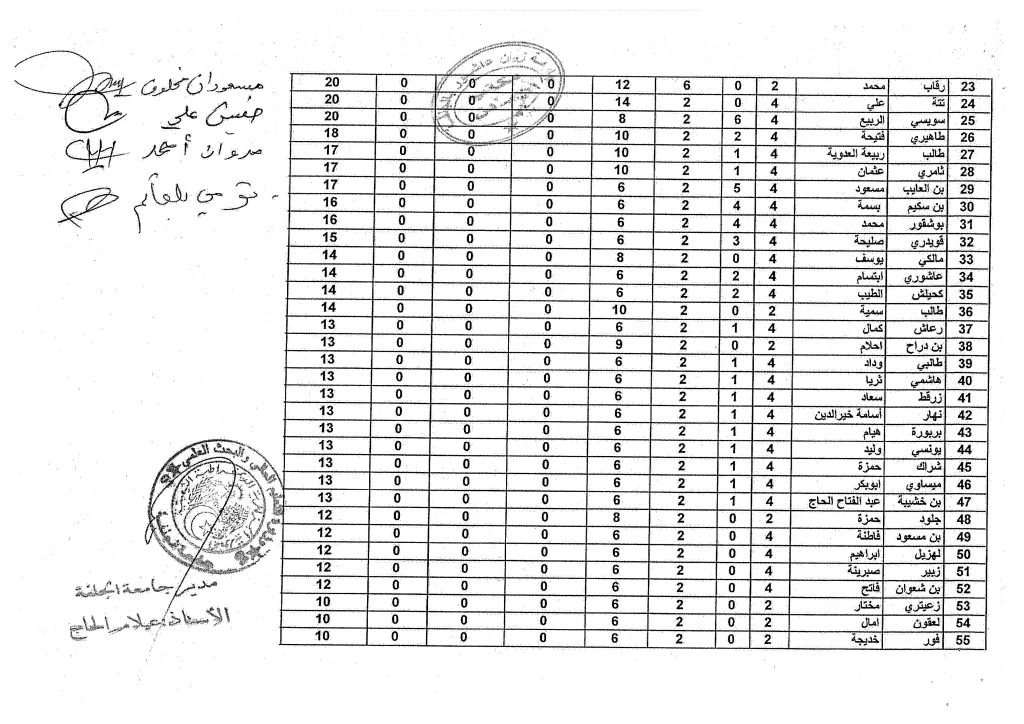 23 رقاب محمد 2 0 6 12 0 0 0 20
24 تتة علي 4 0 2 14 0 0 0 20
25 سويسي الربيع 4 6 2 8 0 0 0 20
26 طاهيري فتيحة 4 2 2 10 0 0 0 18
27 طالب ربيعة العدوية 4 1 2 10 0 0 0 17
28 ثامري عثمان 4 1 2 10 0 0 0 17
29 بن العايب مسعود 4 5 2 6 0 0 0 17
30 بن سكيم بسمة 4 4 2 6 0 0 0 16
31 بوشقور محمد 4 4 2 6 0 0 0 16
32 قويدري صليحة 4 3 2 6 0 0 0 15
33 مالكي يوسف 4 0 2 8 0 0 0 14
34 عاشوري ابتسام 4 2 2 6 0 0 0 14
35 كحيلش الطيب 4 2 2 6 0 0 0 14
36 طالب سمية 2 0 2 10 0 0 0 14
37 رعاش كمال 4 1 2 6 0 0 0 13
38 بن دراح احلام 2 0 2 9 0 0 0 13
39 طالبي وداد 4 1 2 6 0 0 0 13
40 هاشمي ثريا 4 1 2 6 0 0 0 13
41 زرقط سعاد 4 1 2 6 0 0 0 13
42 نهار أسامة خيرالدين 4 1 2 6 0 0 0 13
43 بربورة هيام 4 1 2 6 0 0 0 13
44 يونسي وليد 4 1 2 6 0 0 0 13
45 شراك حمزة 4 1 2 6 0 0 0 13
46 ميساوي ابوبكر 4 1 2 6 0 0 0 13
47 بن خشيبة عبد الفتاح الحاج 4 1 2 6 0 0 0 13
48 جلود حمزة 2 0 2 8 0 0 0 12
49 بن مسعود فاطنة 4 0 2 6 0 0 0 12
50 لهزيل ابراهيم 4 0 2 6 0 0 0 12
51 زيير صبرينة 4 0 2 6 0 0 0 12
52 بن شعوان فاتح 4 0 2 6 0 0 0 12
53 زعيتري مختار 2 0 2 6 0 0 0 10
54 لعقون امال 2 0 2 6 0 0 0 10
55 فور خديجة 2 0 2 6 0 0 0 10
مسعودان مخلوف
علي
أحمد
بلقاسم
مدير جامعة الجلفة
الأستاذ: عيلام الحاج